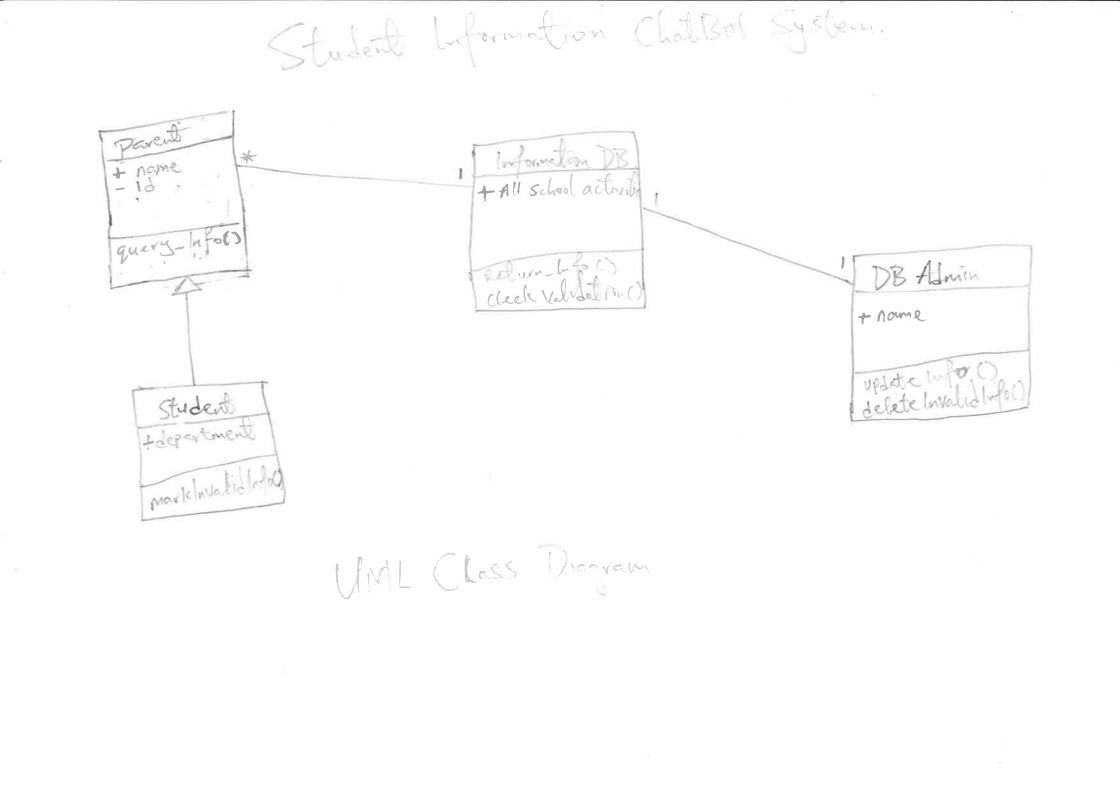 Student Information ChatBot System.
Parent
+ name
- Id
query_Info()
*
1
Information DB
+ All school activiti
return_Info()
check validation()
1
1
DB Admin
+ name
update Info()
deleteInvalidInfo()
Student
+department
markInvalidInfo()
UML Class Diagram